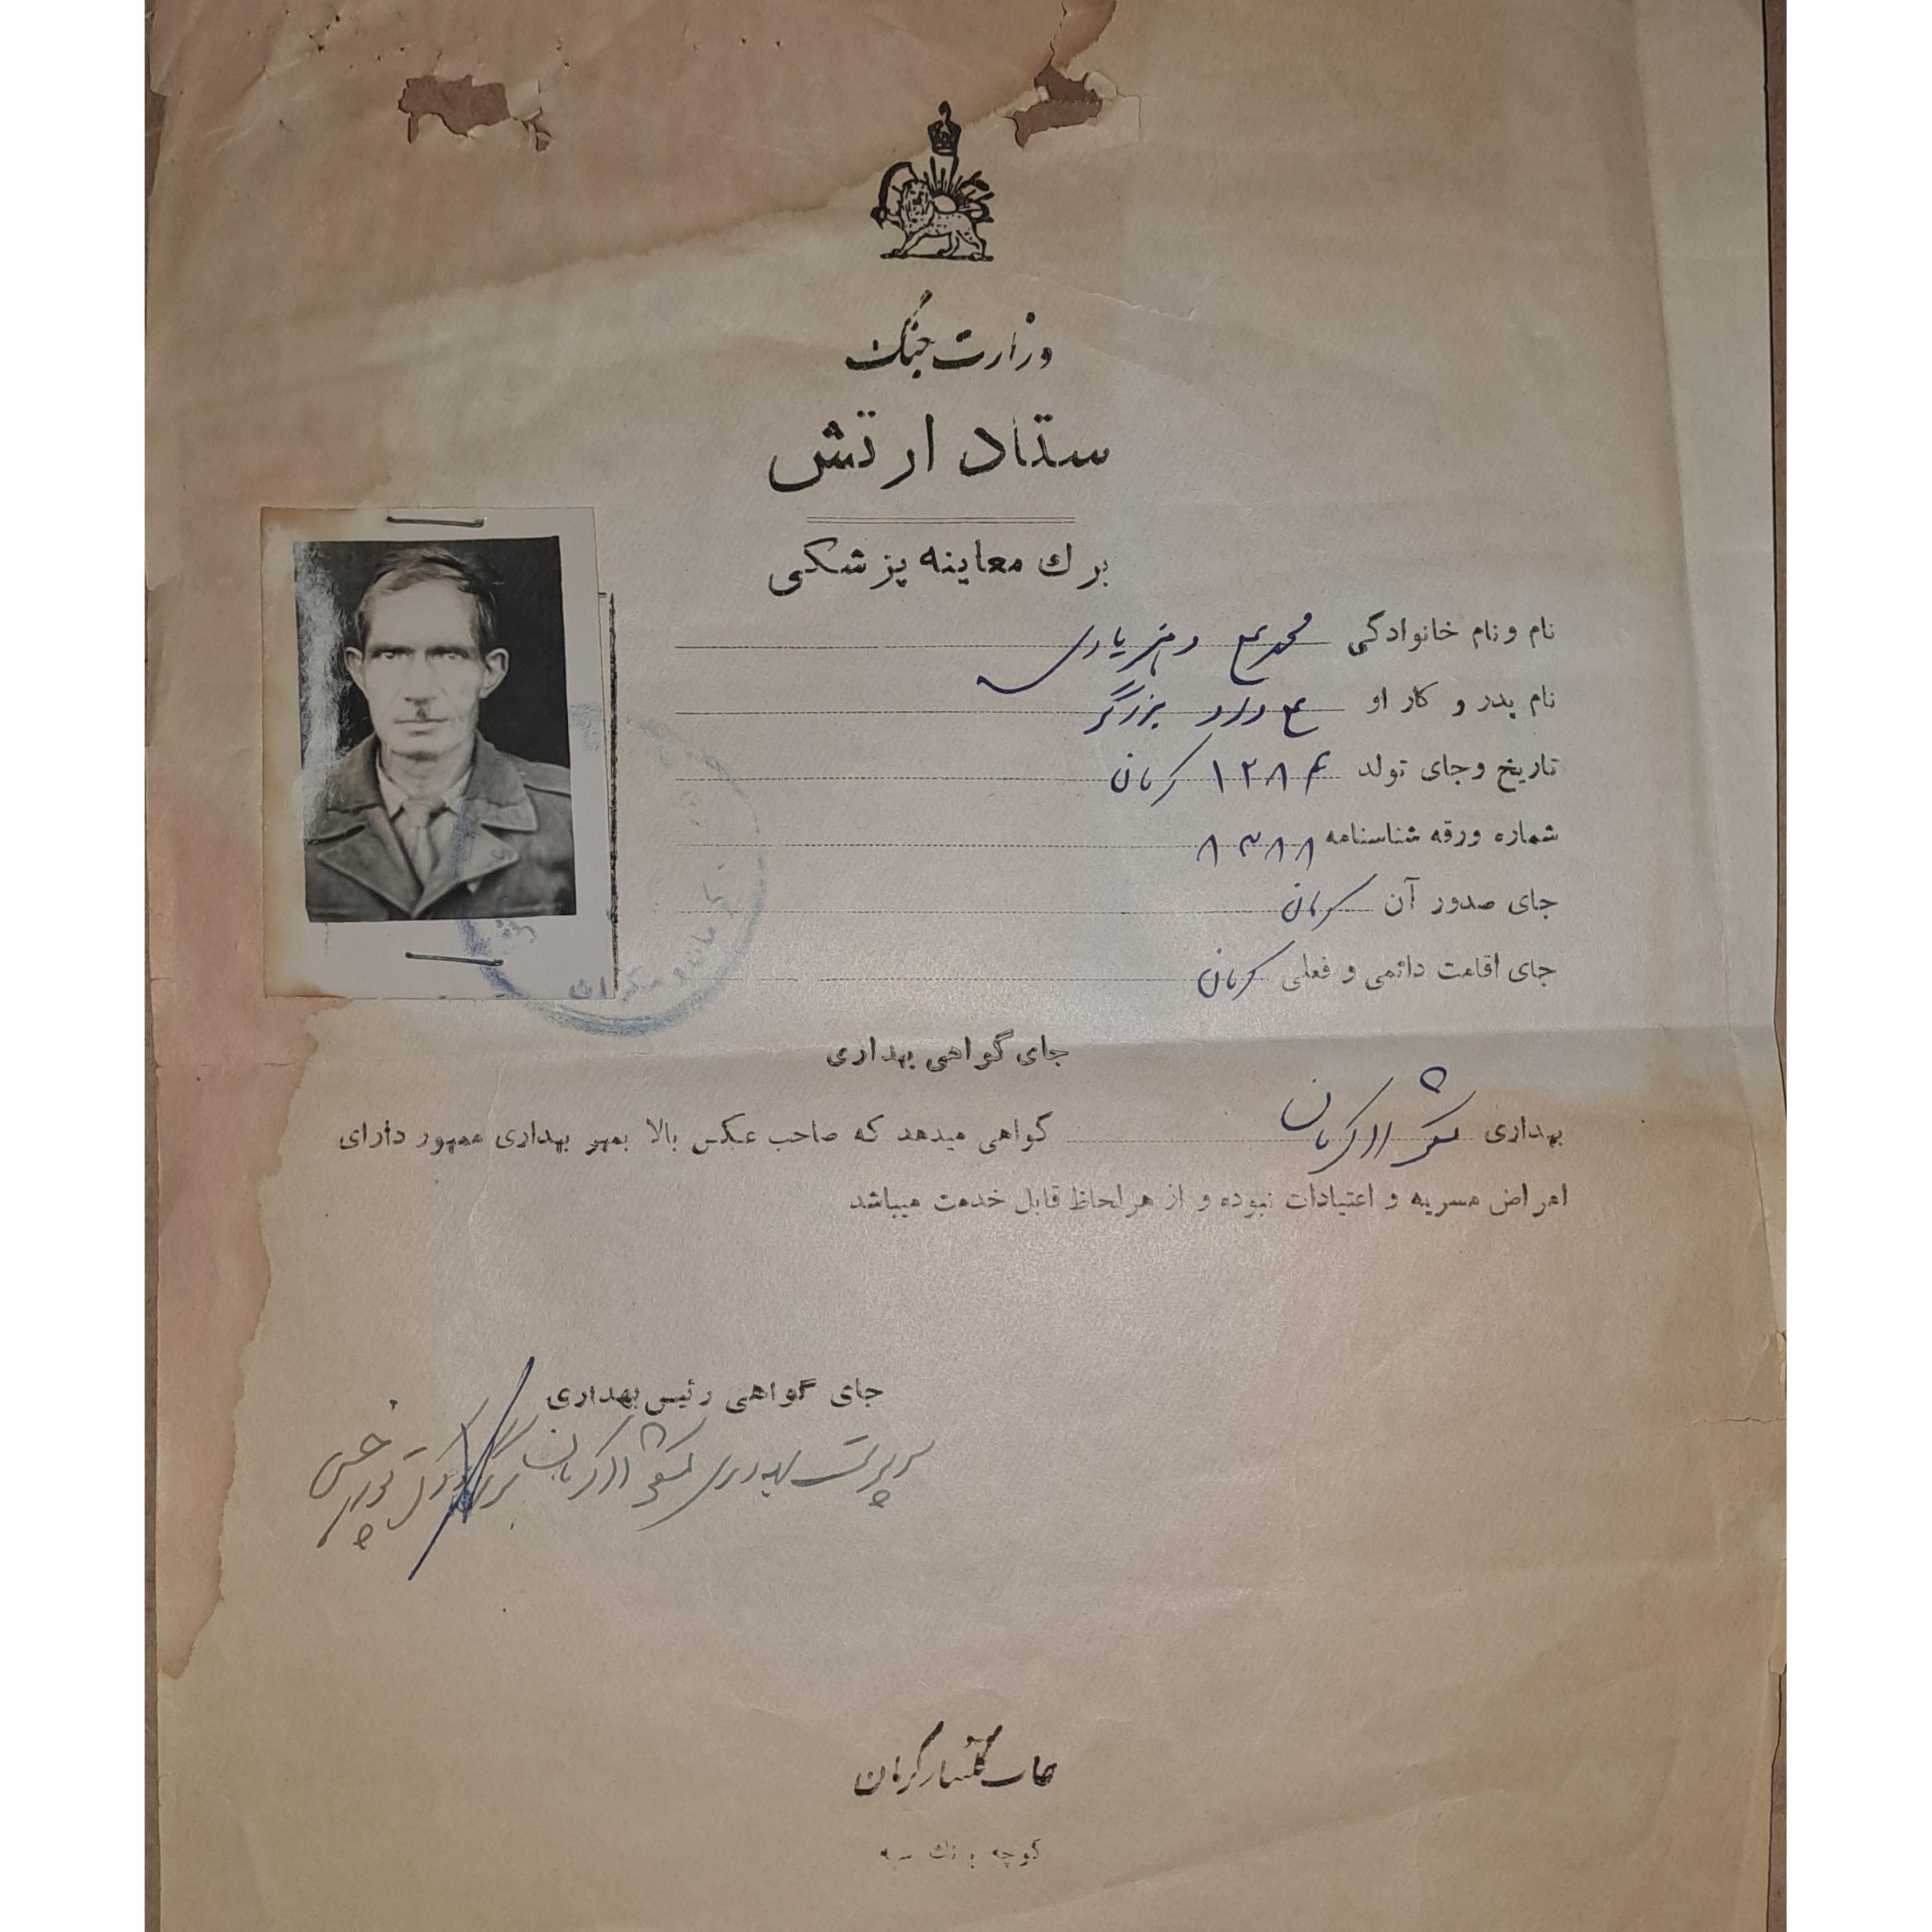 وزارت جنگ
ستاد ارتش
برك معاینه پزشکی
نام و نام خانوادگی محمدعلی
نام پدر و کار او برزگر
تاریخ و جای تولد ۱۲۸۴ کرمان
شماره ورقه شناسنامه ۸۳۸۸
جای صدور آن کرمان
جای اقامت دائمی و فعلی کرمان
جای گواهی بهداری
بهداری لشکر کرمان گواهی میدهد که صاحب عکس بالا بمهر بهداری ممهور دارای
امراض مسریه و اعتیادات نبوده و از هر لحاظ قابل خدمت میباشد
جای گواهی رئیس بهداری
سرپرست بهداری لشکر کرمان
چاپ گلبهار کرمان
کوچه بانك سپه